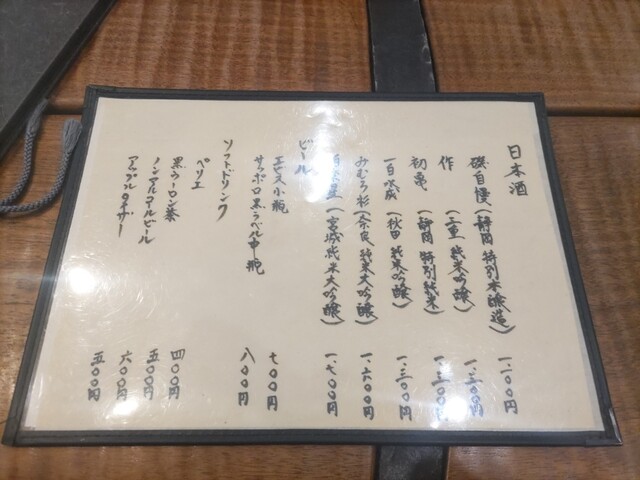 日本酒
磯自慢(静岡 特別本醸造) 一.一〇〇円
作(三重 純米吟醸)
初亀(静岡 特別純米)
一白水成(秋田 純米吟醸) 一.三〇〇円
みむろ杉(奈良 純米大吟醸) 一.六〇〇円
(宮城 純米大吟醸) 一.七〇〇円
ビール
エビス小瓶 七〇〇円
サッポロ黒ラベル中瓶 八〇〇円
ソフトドリンク
ペリエ
黒ウーロン茶 四〇〇円
ノンアルコールビール 五〇〇円
アップルタイザー 六〇〇円
五〇〇円